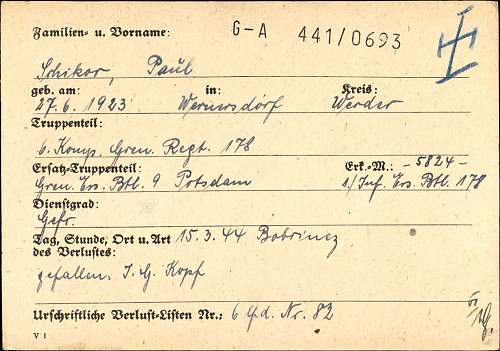 Familien- u. Vorname: G-A 441/0693
Schikor, Paul
geb. am: in: Kreis:
27.6.1923 Wernersdorf Werder
Truppenteil:
6. Komp. Gren. Regt. 178
Ersatz-Truppenteil: Erk.-M.: -5824-
Gren. Ers. Btl. 9 Potsdam 1./Inf. Ers. Btl. 178
Dienstgrad:
Gefr.
Tag, Stunde, Ort u. Art 15.3.44 Bobrinez
des Verlustes:
gefallen. I.G. Kopf
Urschriftliche Verlust-Listen Nr.: 6 lfd. Nr. 82
V 1